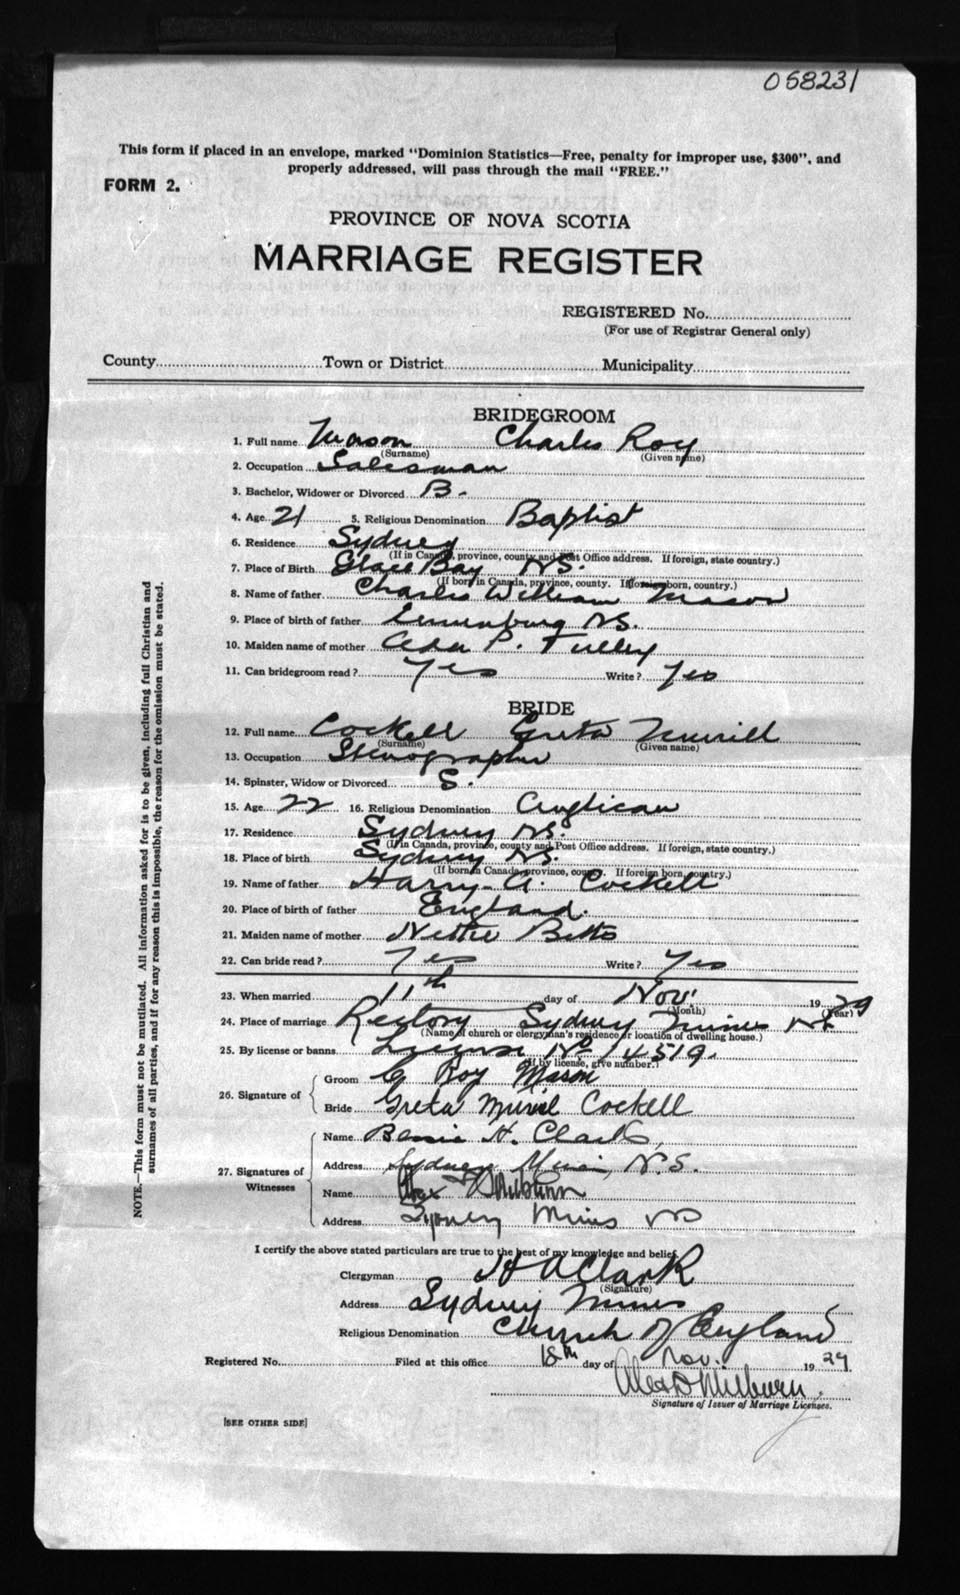 058231
This form if placed in an envelope, marked "Dominion Statistics—Free, penalty for improper use, $300", and
properly addressed, will pass through the mail "FREE."
FORM 2.
PROVINCE OF NOVA SCOTIA
MARRIAGE REGISTER
REGISTERED No.
(For use of Registrar General only)
County Town or District Municipality
BRIDEGROOM
1. Full name Mason Charles Roy
(Surname) (Given name)
2. Occupation Salesman
3. Bachelor, Widower or Divorced B.
4. Age 21 5. Religious Denomination Baptist
6. Residence Sydney
(If in Canada, province, county and Post Office address. If foreign, state country.)
7. Place of Birth Glace Bay NS.
(If born in Canada, province, county. If foreign born, country.)
8. Name of father Charles William Mason
9. Place of birth of father Lunenburg NS.
10. Maiden name of mother P. Tulley
11. Can bridegroom read? Yes Write? Yes
BRIDE
12. Full name Cockell Greta Muriel
(Surname) (Given name)
13. Occupation Stenographer
14. Spinster, Widow or Divorced S.
15. Age 22 16. Religious Denomination Anglican
17. Residence Sydney NS.
(If in Canada, province, county and Post Office address. If foreign, state country.)
18. Place of birth Sydney NS.
(If born in Canada, province, county. If foreign born, country.)
19. Name of father Harry A. Cockell
20. Place of birth of father England.
21. Maiden name of mother Nettie Betts
22. Can bride read? Yes Write? Yes
23. When married 11th day of Nov. 1929
(Month) (Year)
24. Place of marriage Rectory Sydney Mines NS
(Name of church or clergyman's residence or location of dwelling house.)
25. By license or banns License No 14519.
(If by license, give number.)
26. Signature of
Groom C Roy Mason
Bride Greta Muriel Cockell
27. Signatures of Witnesses
Name Bessie H. Clark,
Address Sydney Mines, N.S.
Name Alex D Milburn
Address Sydney Mines NS
I certify the above stated particulars are true to the best of my knowledge and belief.
Clergyman H A Clark
(Signature)
Address Sydney Mines
Religious Denomination Church of England
Registered No. Filed at this office 18th day of Nov. 1929
Alex D Milburn.
Signature of Issuer of Marriage Licenses.
[SEE OTHER SIDE]
NOTE.—This form must not be mutilated. All information asked for is to be given, including full Christian and
surnames of all parties, and if for any reason this is impossible, the reason for the omission must be stated.